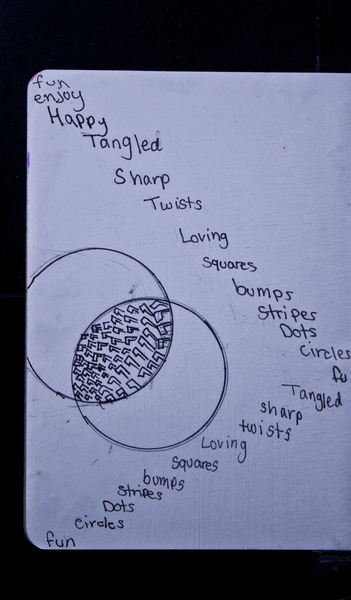 fun
enjoy
Happy
Tangled
Sharp
Twists
Loving
Squares
bumps
Stripes
Dots
Circles
fu
Tangled
sharp
twists
Loving
Squares
bumps
Stripes
Dots
circles
fun